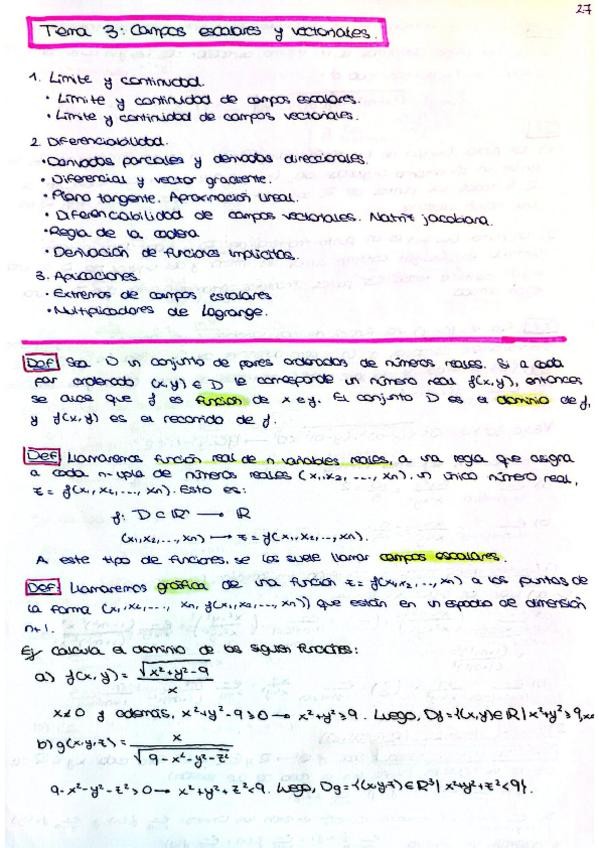 27
Tema 3: Campos escalares y vectoriales.
1. Límite y continuidad.
• Límite y continuidad de campos escalares.
• Límite y continuidad de campos vectoriales.
2. Diferenciabilidad.
• Derivadas parciales y derivadas direccionales.
• Diferencial y vector gradiente.
• Plano tangente. Aproximación lineal.
• Diferenciabilidad de campos vectoriales. Matriz jacobiana.
• Regla de la cadena
• Derivación de funciones implícitas.
3. Aplicaciones
• Extremos de campos escalares
• Multiplicadores de Lagrange.
Def Sea D un conjunto de pares ordenados de números reales. Si a cada
par ordenado (x,y) ∈ D le corresponde un número real f(x,y), entonces
se dice que f es función de x e y. El conjunto D es el dominio de f,
y f(x,y) es el recorrido de f.
Def Llamaremos función real de n variables reales, a una regla que asigna
a cada n-upla de números reales (x₁,x₂, ..., xn), un único número real,
z = f(x₁,x₂, ..., xn). Esto es:
f: D ⊂ ℝⁿ → ℝ
(x₁,x₂,...,xn) → z = f(x₁,x₂,...,xn).
A este tipo de funciones, se los suele llamar campos escalares.
Def Llamaremos gráfica de una función z = f(x₁,x₂,...,xn) a los puntos de
la forma (x₁,x₂,..., xn, f(x₁,x₂,...,xn)) que están en un espacio de dimensión
n+1.
Ej Calcula el dominio de las siguien funciones:
a) f(x,y) = √(x²+y²-9) / x
x≠0 y además, x²+y²-9≥0 → x²+y²≥9. Luego, Df={(x,y)∈ℝ / x²+y²≥9,x≠
b) g(x,y,z) = x / √(9-x²-y²-z²)
9-x²-y²-z²>0 → x²+y²+z²<9. Luego, Dg={(x,y,z)∈ℝ³/ x²+y²+z²<9}.